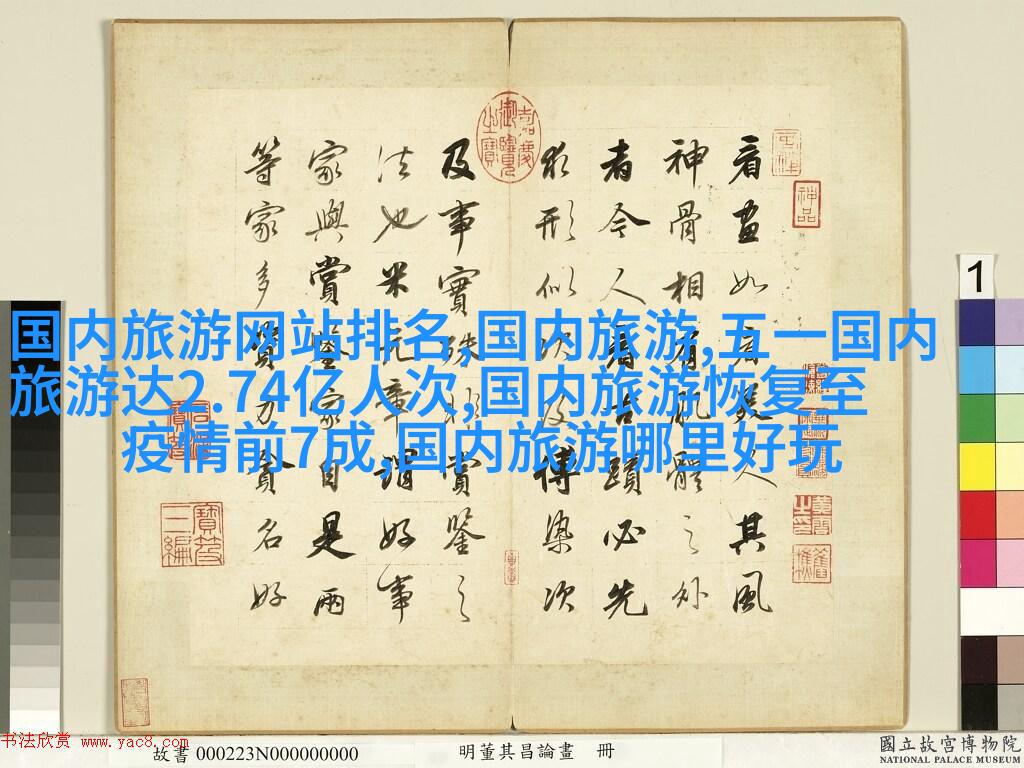 看畫如看美人其風
神骨相有肌體之外
者今人看古蹟必先
求形似次及傅染次
及事實殊非賞鑒之
法也米元章謂好事
家與賞鑒家自是兩
等家多資力貪名好
嘉慶御覽之寶
神品
寶笈三編
国内旅游网站排名,国内旅游,五一国内
旅游达2.74亿人次,国内旅游恢复至
疫情前7成,国内旅游哪里好玩
1
书法欣赏 www.yac8.com
故書 000223N000000000
明董其昌論畫 冊
國立故宮博物院
NATIONAL PALACE MUSEUM